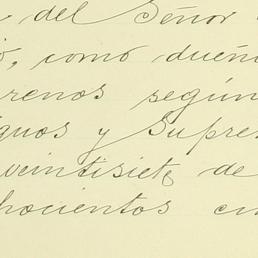 del Señor
como dueñ
renos según
guos y Supre
veintisiete de
hocientos